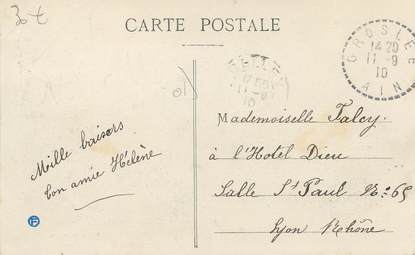 30t
CARTE POSTALE
GROSLEE
14 20
11-9
10
AIN
11-9
10
Mademoiselle Talcy.
à l'Hotel Dieu
Salle St Paul No 65
Lyon Rhône
Mille baisers
ton amie Hélène